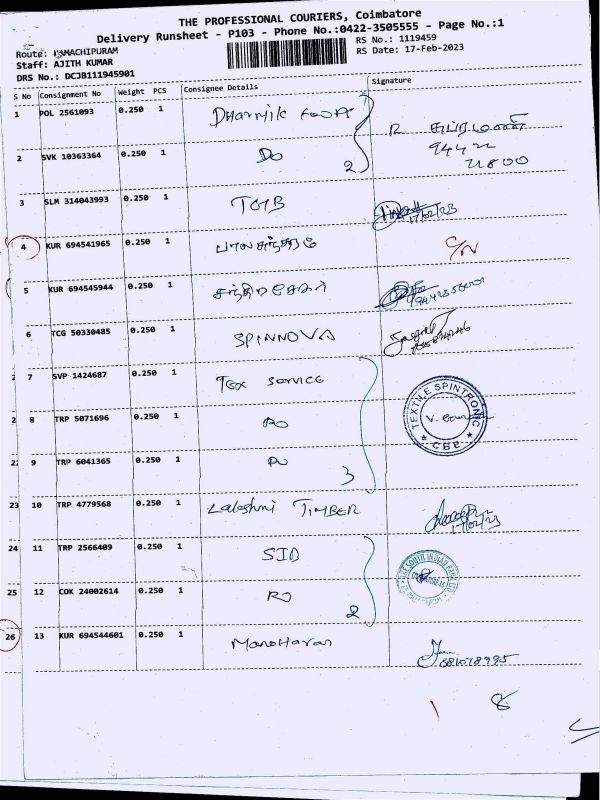 THE PROFESSIONAL COURIERS, Coimbatore
Delivery Runsheet - P103 - Phone No.:0422-3505555 - Page No.:1
Route: RAMACHIPURAM
RS No.: 1119459
Staff: AJITH KUMAR
RS Date: 17-Feb-2023
DRS No.: DCJB111945901
S No Consignment No Weight PCS Consignee Details Signature
1 POL 2561093 0.250 1
சுப்ரமணி
2 SVK 10363364 0.250 1 Do 2
94422
21800
3 SLM 314043993 0.250 1 TMB 17/02/23
4 KUR 694541965 0.250 1 பாலசுந்தரம் C/N
5 KUR 694545944 0.250 1 சந்திரசேகர்
6 TCG 50330485 0.250 1 SPINNOVA
7 SVP 1424687 0.250 1 Tex Service
TEXTILE SPINTRONIC
CBE
2 8 TRP 5071696 0.250 1 Do
22 9 TRP 6041365 0.250 1 Do 3
23 10 TRP 4779568 0.250 1 Lakshmi TIMBER 17/02/23
24 11 TRP 2566409 0.250 1 SIB
THE SOUTH INDIAN BANK LTD
25 12 COK 24002614 0.250 1 Do 2
26 13 KUR 694544601 0.250 1 Manoharan
8